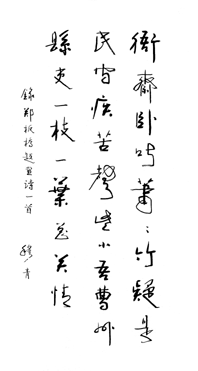 衙齋卧听萧〻竹疑是
民间疾苦聲些小吾曹州
縣吏一枝一葉总关情
錄郑板桥题画诗一首
穆青